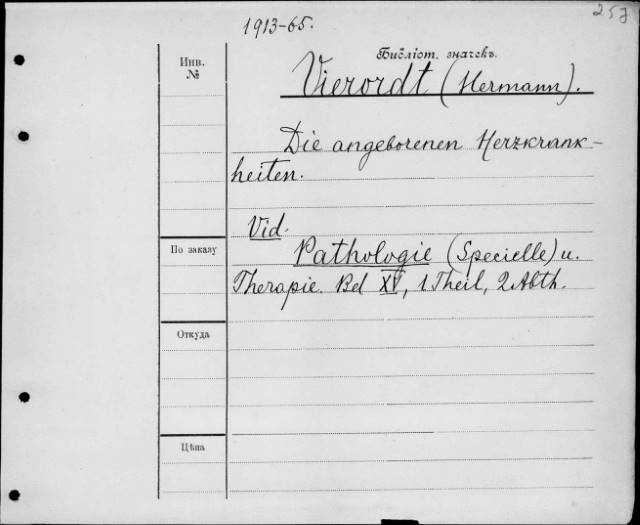 257
1913-65.
Инв.
№
Библіот. значекъ.
Vierordt (Hermann).
Die angeborenen Herzkrank-
heiten.
Vid.
Pathologie (Specielle) u.
По заказу
Therapie. Bd XV, 1 Theil, 2 Abth.
Откуда
Цѣна